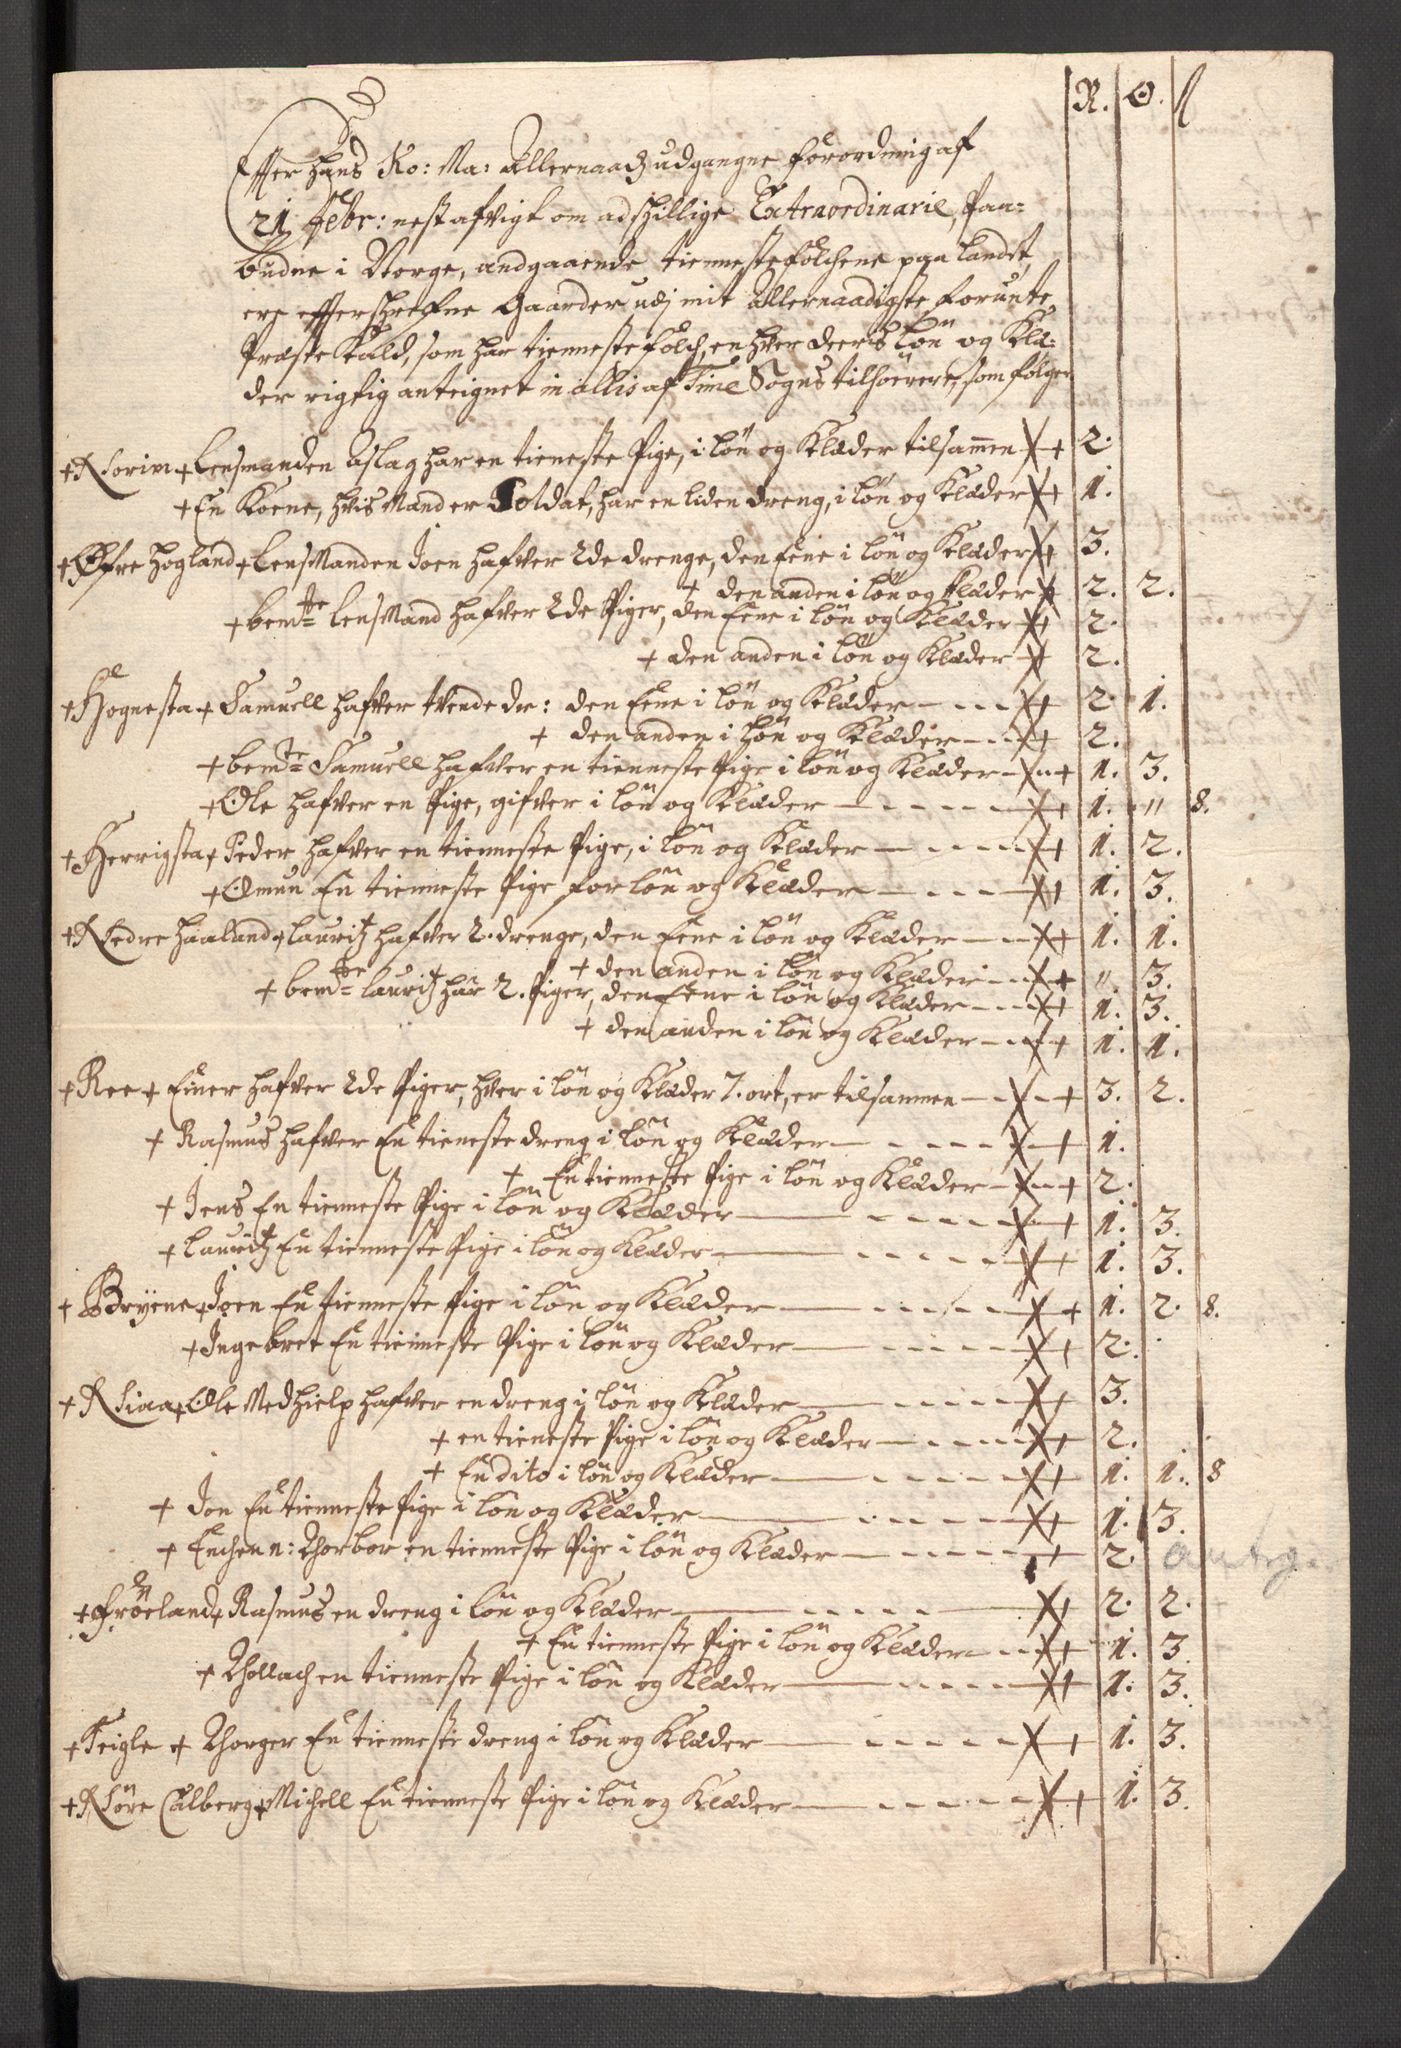 R. O. ſ
Effter Hans Ko: Ma: Allernaad: udgangne forordning af
21 febr: nest afvigt om adschillige Extraordinarie, Paa=
budne i Norge, andgaaende tienneste folchene paa landet,
ere effterschrefne Gaarder udj mit allernaadigste forunte
Præste Kald, som har tienneste folch, en hver deeris løn og Klæ=
der rigtig anteignet in allis af Time Sogns tilhørere, som følger
+ Norim + Lensmanden Aslag har en tieneste Pige, i løn og Klæder tilsammen X+ 2.
+ En Koene, hvis Mand er Soldat, har en liden dreng, i løn og Klæder X+ 1.
+ Øfre Hogland + LensManden Joen hafver 2de drenge, den Eene i løn og Klæder X+ 3.
+ den anden i løn og Klæder X 2. 2.
+ bemte LensMand hafver 2de Piger, den Eene i løn og Klæder X+ 2.
+ den anden i løn og Klæder X+ 2.
+ Hognesta + Samuell hafver tvende dr: den Eene i løn og Klæder - - - X+ 2. 1.
+ den anden i løn og Klæder - - - X+ 2.
+ bemte Samuell hafver en tienneste Pige i løn og Klæder - X - + 1. 3.
+ Ole hafver en Pige, gifver i løn og Klæder - - - - X+ 1. " 8.
+ Herrigsta + Peder hafver en tienneste Pige, i løn og Klæder - - - - X+ 1. 2.
+ Omun En tienneste Pige for løn og Klæder - - - - X+ 1. 3.
+ Nedre Haaland + Lauritz hafver 2. drenge, den Eene i løn og Klæder - - - X+ 1. 1.
+ den anden i løn og Klæder - - X+ ". 3.
+ bemte Lauritz har 2. Piger, den Eene i løn og Klæder - - - X+ 1. 3.
+ den anden i løn og Klæder - - - X+ 1. 1.
+ Ree + Einer hafver 2de Piger, hver i løn og Klæder 7. ort, er tilsammen - - X - + 3. 2.
+ Rasmus hafver En tieneste dreng i løn og Klæder - - - - X - + 1.
+ En tienneste Pige i løn og Klæder - X - + 2.
+ Jens En tienneste Pige i løn og Klæder - - - - X - + 1. 3.
+ Lauritz En tienneste Pige i løn og Klæder - - - - X+ 1. 3.
+ Bryene + Joen En tienneste Pige i løn og Klæder - - - - X + 1. 2. 8.
+ Ingebret En tienneste Pige i løn og Klæder - - - - X+ 2.
+ Niaa + Ole Medhielp hafver en dreng i løn og Klæder - - - - X+ 3.
+ en tieneste Pige i løn og Klæder - - - - X+ 2.
+ En dito i løn og Klæder - - - - X+ 1. 1. 8
+ Jon En tienneste Pige i løn og Klæder - - - - X+ 1. 3.
+ Enchenn: Thorbor en tienneste Pige i løn og Klæder - - - - + 2.
+ Frøeland + Rasmus en dreng i løn og Klæder - - - - X+ 2. 2.
+ En tienneste Pige i løn og Klæder - - X+ 1. 3.
+ Thollach en tienneste Pige i løn og Klæder - - - - X+ 1. 3.
+ Teigle + Thorger En tienneste dreng i løn og Klæder - - - - X + 1. 3.
+ Nöre Calberg + Michell En tienneste Pige i løn og Klæder - - - - X + 1. 3.